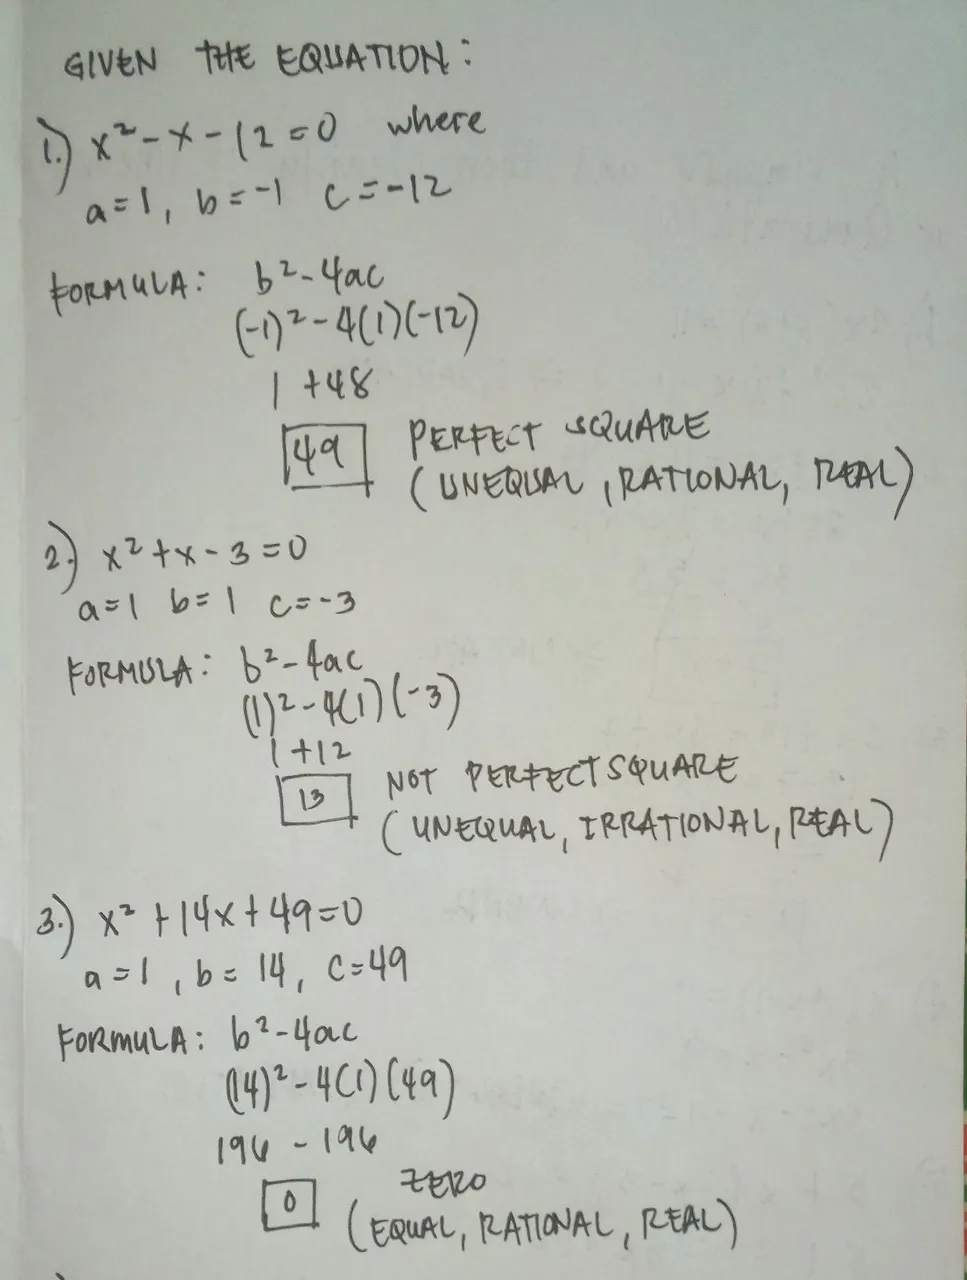 GIVEN THE EQUATION:
1.) x² - x - 12 = 0 where
a = 1, b = -1 c = -12
FORMULA: b² - 4ac
(-1)² - 4(1)(-12)
1 + 48
49 PERFECT SQUARE
(UNEQUAL, RATIONAL, REAL)
2.) x² + x - 3 = 0
a = 1 b = 1 c = -3
FORMULA: b² - 4ac
(1)² - 4(1)(-3)
1 + 12
13 NOT PERFECT SQUARE
(UNEQUAL, IRRATIONAL, REAL)
3.) x² + 14x + 49 = 0
a = 1, b = 14, c = 49
FORMULA: b² - 4ac
(14)² - 4(1)(49)
196 - 196
0 ZERO
(EQUAL, RATIONAL, REAL)